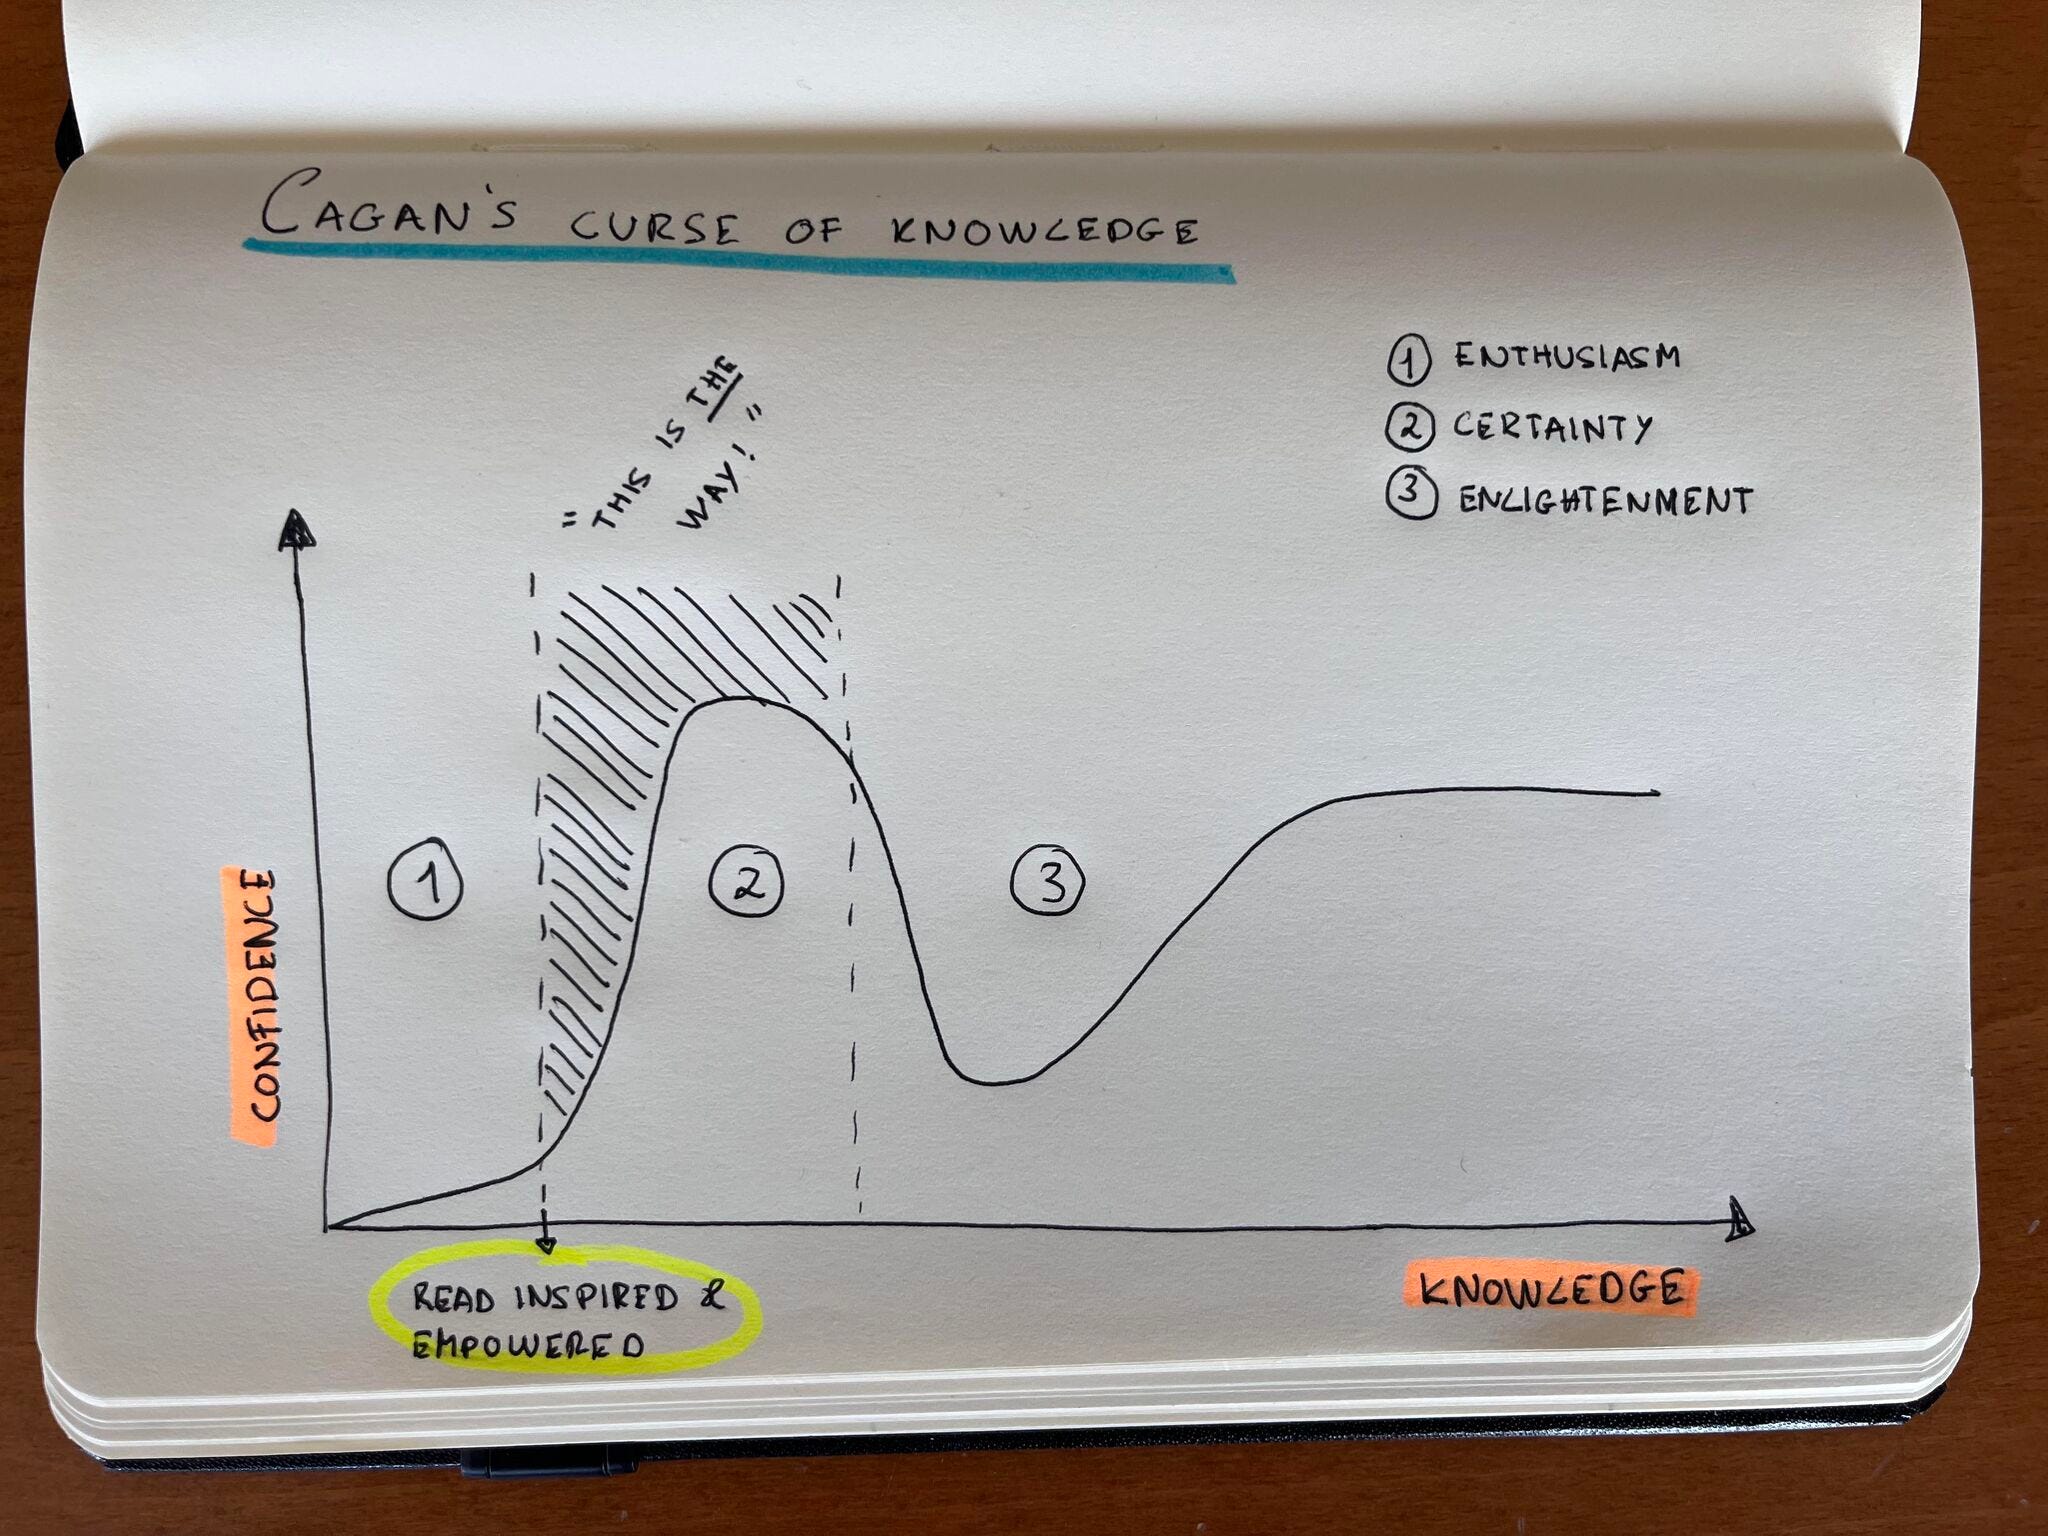 CAGAN'S CURSE OF KNOWLEDGE
① ENTHUSIASM
② CERTAINTY
③ ENLIGHTENMENT
"THIS IS THE
WAY!"
CONFIDENCE
①
②
③
KNOWLEDGE
READ INSPIRED &
EMPOWERED